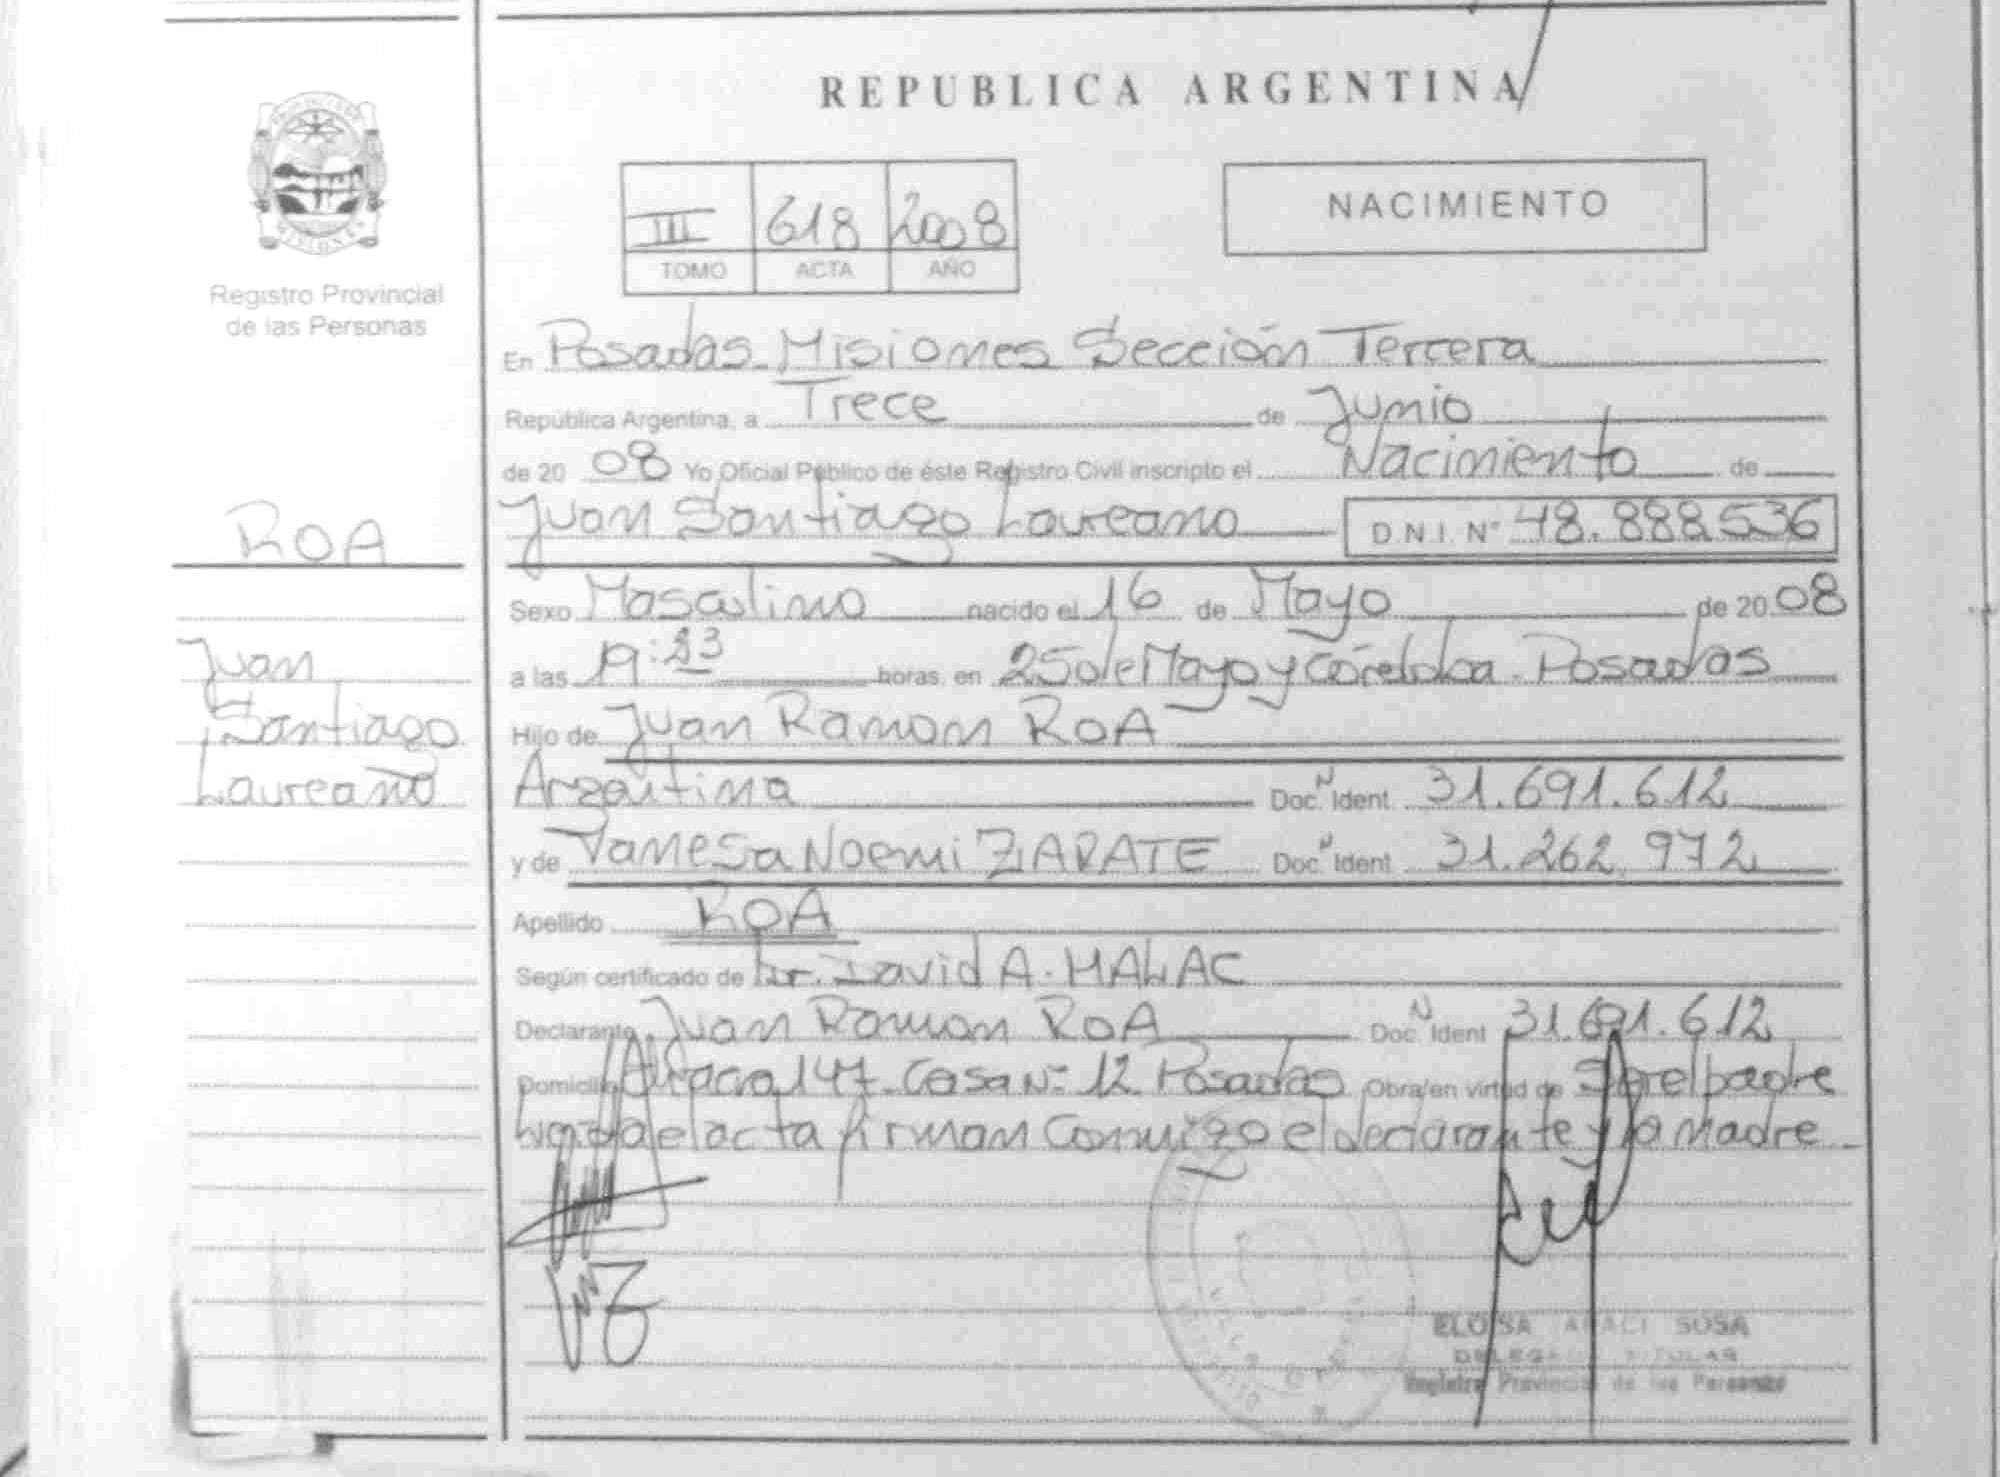 REPUBLICA ARGENTINA
III 618 2008
TOMO ACTA AÑO
NACIMIENTO
MISIONES
Registro Provincial
de las Personas
ROA
Juan
Santiago
Laureano
En Posadas Misiones Sección Tercera
República Argentina, a Trece de Junio
de 2008 Yo Oficial Público de éste Registro Civil inscripto el Nacimiento de
Juan Santiago Laureano D.N.I. Nº 48.888.536
Sexo Masculino nacido el 16 de Mayo de 2008
a las 19: horas, en 25 de Mayo y Córdoba - Posadas
Hijo de Juan Ramon ROA
Argentina Doc. N Ident. 31.691.612
y de Vanesa Noemi ZARATE Doc. N Ident. 31.262.972
Apellido ROA
Según certificado de Dr. David A. MALAC
Declarante Juan Ramon ROA Doc. N Ident 31.691.612
Domicilio 147 - Casa Nº 12 Posadas Obra/en virtud de Ser el padre
Leída el acta firman Conmigo el declarante y la Madre
ELOISA ARACI SUSA
DELEGADA TITULAR
Registro Provincial de las Personas